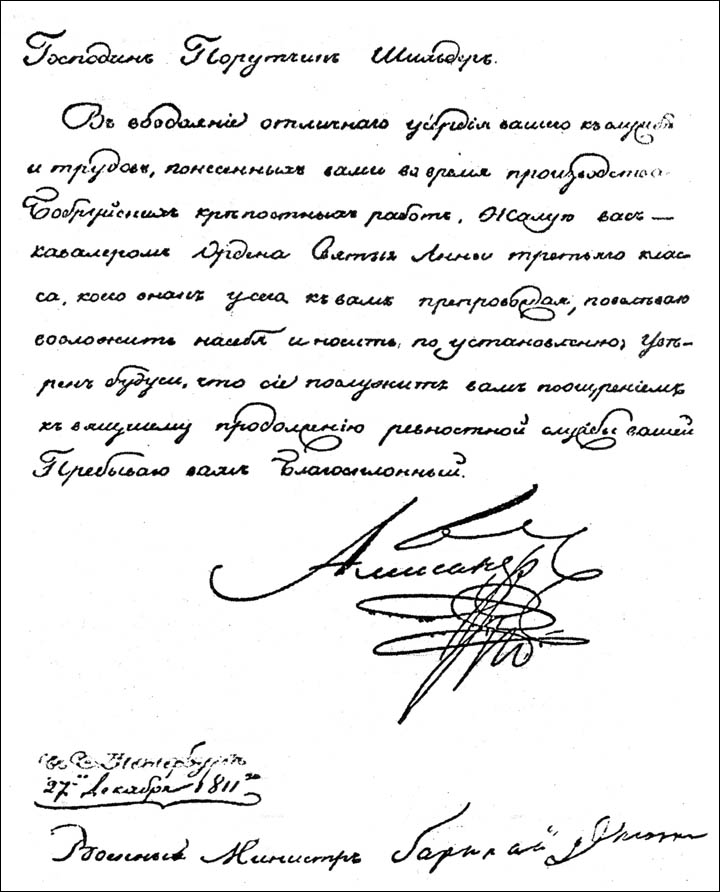 Господинъ Порутчикъ Шильдеръ.
Въ воздаяніе отличнаго усердія вашего къ службѣ
и трудовъ, понесенныхъ вами во время производства
Бобруйскихъ крѣпостныхъ работъ, Жалую васъ —
кавалеромъ Ордена Святыя Анны третьяго клас-
са, коего знакъ у сего къ вамъ препровождая, повелѣваю
возложить на себя и носить по установленію; Увѣ-
ренъ будучи, что сіе послужитъ вамъ поощреніемъ
къ вящшему продолженію ревностной службы вашей
Пребываю вамъ Благосклонный.
Александръ
въ С. Петербургѣ
27го Декабря 1811го
Военный Министръ Барклай